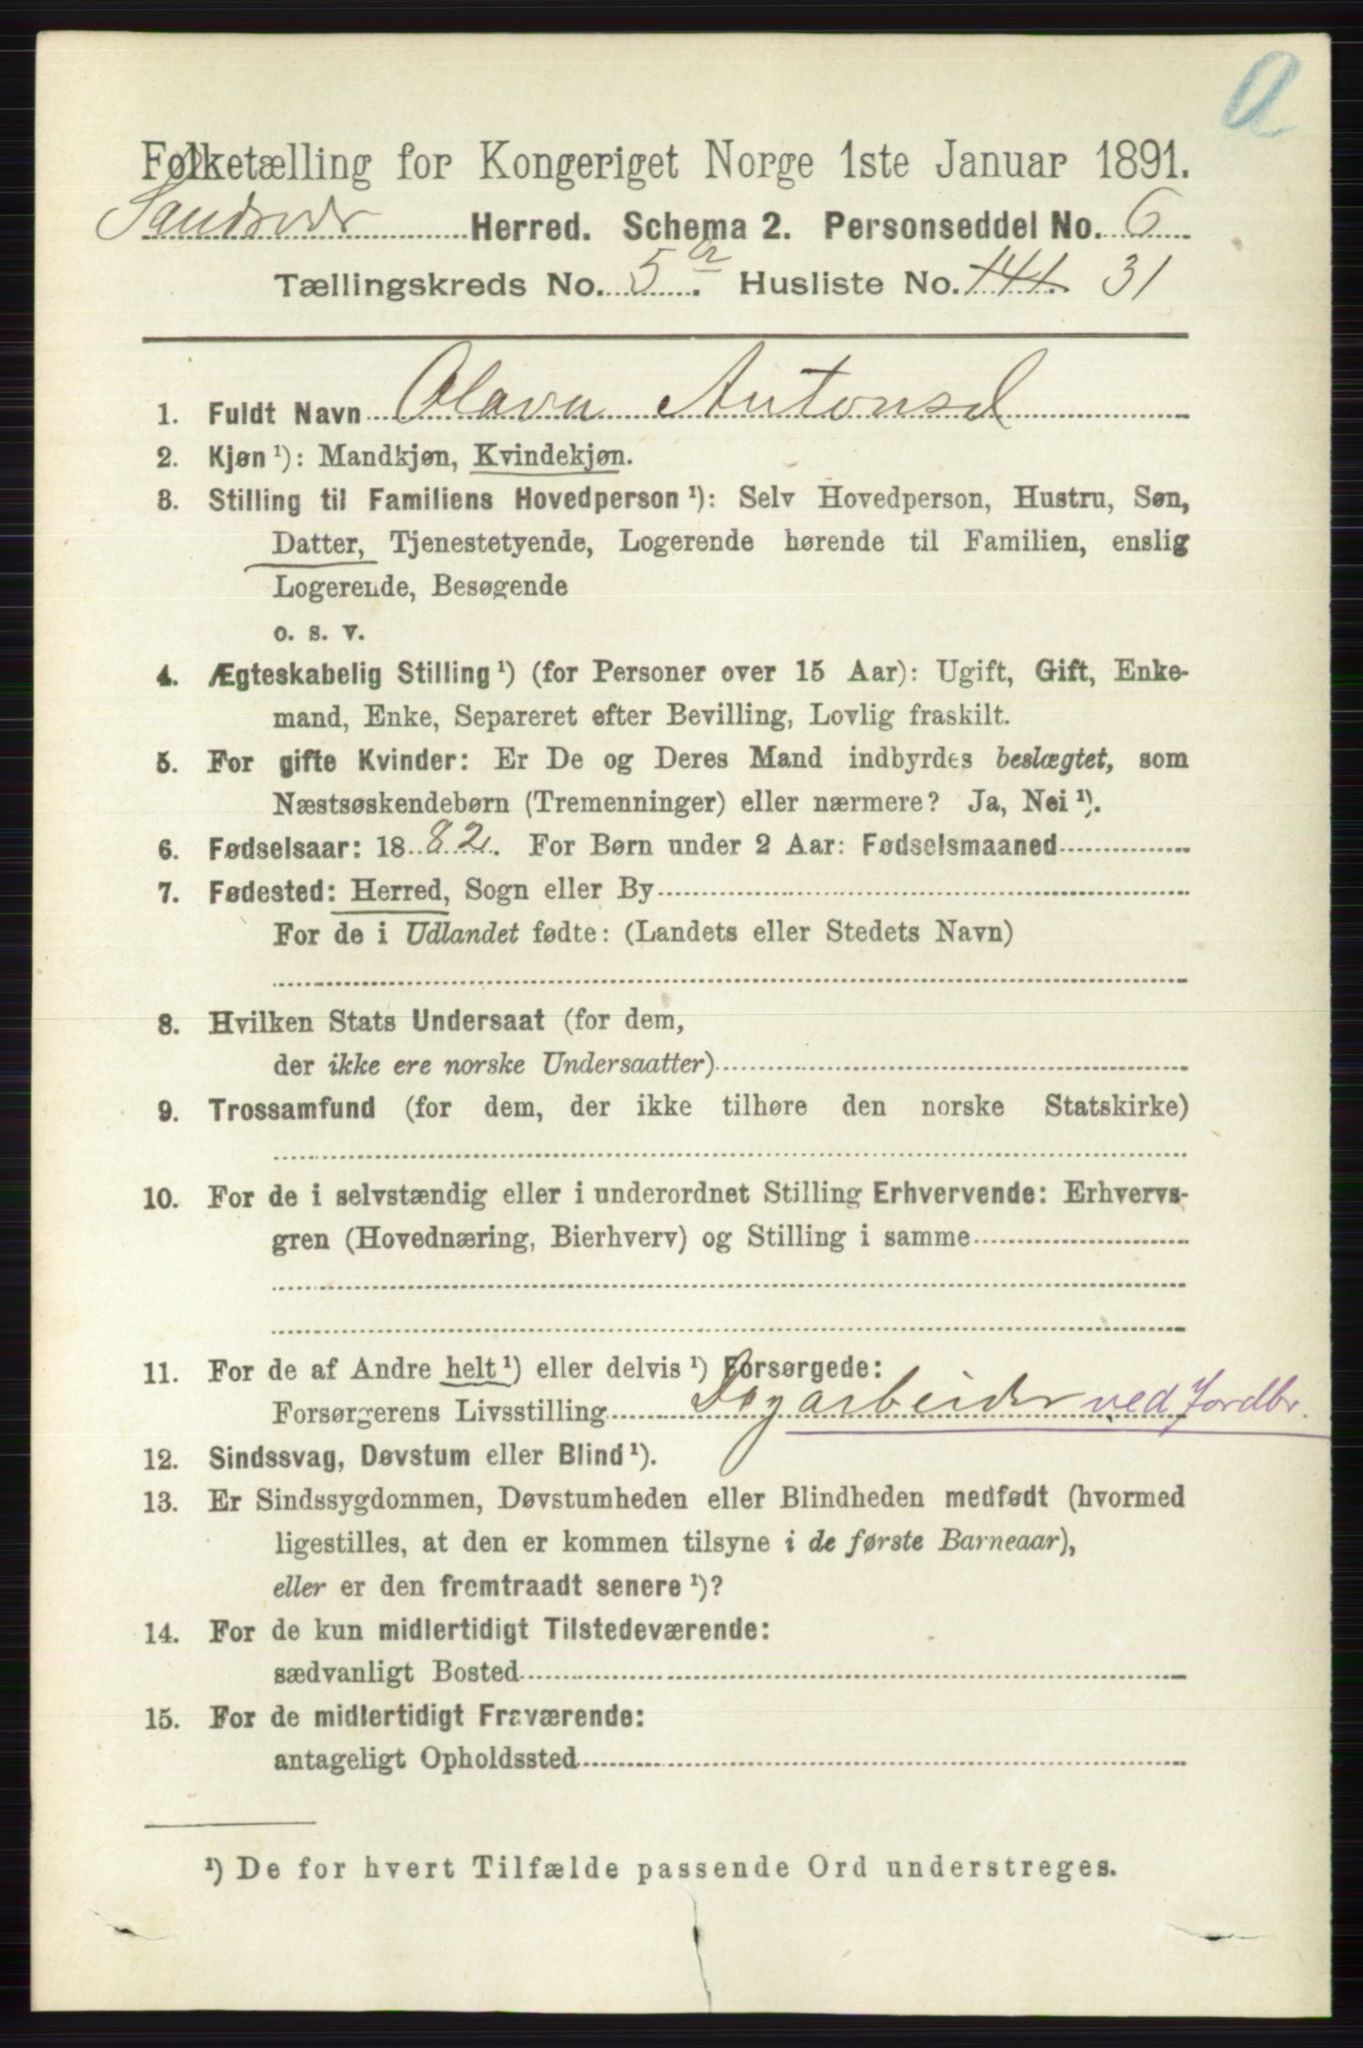 a
Folketælling for Kongeriget Norge 1ste Januar 1891.
Sandsvær Herred. Schema 2. Personseddel No. 6
Tællingskreds No. 5 a. Husliste No. 141 31
1. Fuldt Navn Olava Antonsd
2. Kjøn ¹): Mandkjøn, Kvindekjøn.
3. Stilling til Familiens Hovedperson ¹): Selv Hovedperson, Hustru, Søn,
Datter, Tjenestetyende, Logerende hørende til Familien, enslig
Logerende, Besøgende
o. s. v.
4. Ægteskabelig Stilling ¹) (for Personer over 15 Aar): Ugift, Gift, Enke-
mand, Enke, Separeret efter Bevilling, Lovlig fraskilt.
5. For gifte Kvinder: Er De og Deres Mand indbyrdes beslægtet, som
Næstsøskendebørn (Tremenninger) eller nærmere? Ja, Nei ¹).
6. Fødselsaar: 1882. For Børn under 2 Aar: Fødselsmaaned
7. Fødested: Herred, Sogn eller By
For de i Udlandet fødte: (Landets eller Stedets Navn)
8. Hvilken Stats Undersaat (for dem,
der ikke ere norske Undersaatter)
9. Trossamfund (for dem, der ikke tilhøre den norske Statskirke)
10. For de i selvstændig eller i underordnet Stilling Erhvervende: Erhvervs-
gren (Hovednæring, Bierhverv) og Stilling i samme
11. For de af Andre helt ¹) eller delvis ¹) Forsørgede:
Forsørgerens Livsstilling Dagarbeider ved Jordbr.
12. Sindssvag, Døvstum eller Blind ¹).
13. Er Sindssygdommen, Døvstumheden eller Blindheden medfødt (hvormed
ligestilles, at den er kommen tilsyne i de første Barneaar),
eller er den fremtraadt senere ¹)?
14. For de kun midlertidigt Tilstedeværende:
sædvanligt Bosted
15. For de midlertidigt Fraværende:
antageligt Opholdssted
¹) De for hvert Tilfælde passende Ord understreges.